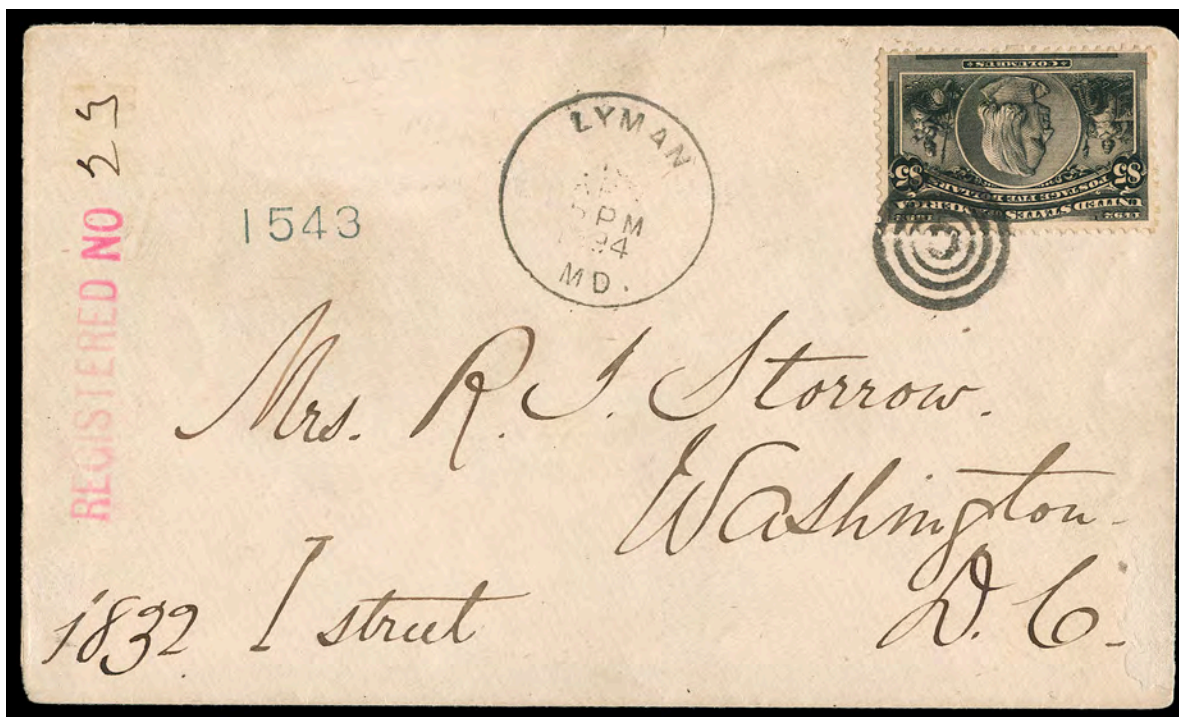 REGISTERED NO 25
1543
LYMAN
5 PM
94
MD.
COLUMBUS
$5 $5
POSTAGE FIVE DOLLARS
UNITED STATES OF AMERICA
Mrs. R. S. Storrow.
Washington
D. C.
1832 I street